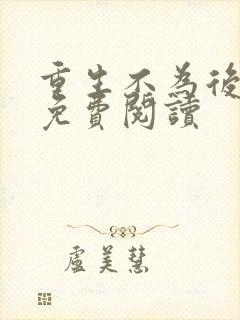 重生不為後
免費閱讀
盧美慧